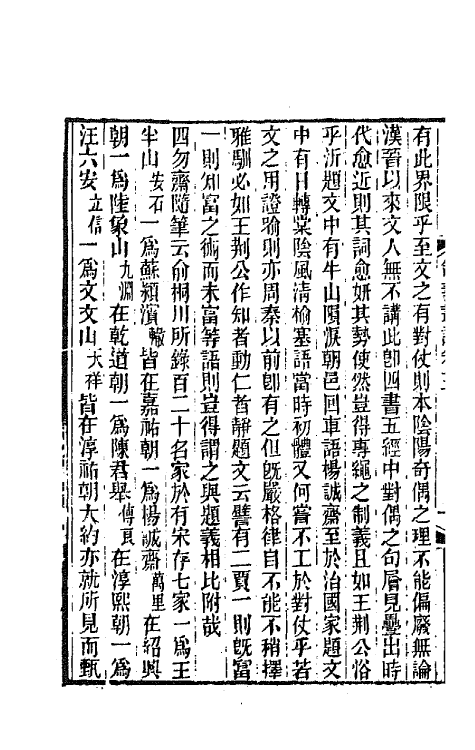 有此界限乎至文之有對仗則本陰陽奇偶之理不能偏廢無論
漢晉以來文人無不講此卽四書五經中對偶之句層見疊出時
代愈近則其詞愈妍其勢使然豈得專繩之制義且如王荊公俗
乎沂題文中有牛山隕淚朝邑回車語楊誠齋至於治國家題文
中有日轉棠陰風清榆塞語當時初體又何嘗不工於對仗乎若
文之用證喻則亦周秦以前卽有之但旣嚴格律自不能不稍擇
雅馴必如王荊公作知者動仁者靜題文云譬有二賈一則旣富
一則知富之術而未富等語則豈得謂之與題義相比附哉
四勿齋隨筆云俞桐川所錄百二十名家於有宋存七家一爲王
半山安石一爲蘇潁濱轍皆在嘉祐朝一爲楊誠齋萬里在紹興
朝一爲陸象山九淵在乾道朝一爲陳君舉傅良在淳熙朝一爲
汪六安立信一爲文文山天祥皆在淳祐朝大約亦就所見而甄